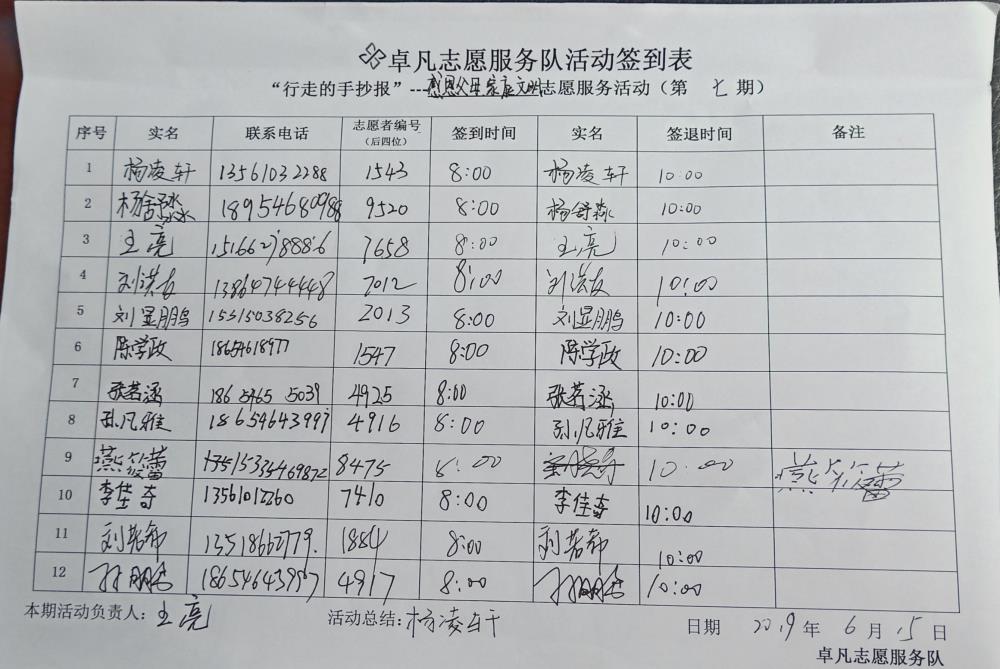 卓凡志愿服务队活动签到表
“行走的手抄报”---感恩父母家庭文明志愿服务活动（第 七 期）
序号 实名 联系电话 志愿者编号（后四位） 签到时间 实名 签退时间 备注
1 杨凌轩 13561032288 1543 8:00 杨凌轩 10:00
2 杨舒淼 18954680988 9520 8:00 杨舒淼 10:00
3 王亮 15166278886 7658 8:00 王亮 10:00
4 刘洪友 13864744448 7012 8:00 刘洪友 10:00
5 刘显鹏 15315038256 2013 8:00 刘显鹏 10:00
6 陈学政 18654618977 1547 8:00 陈学政 10:00
7 张若涵 186 5465 5039 4925 8:00 张若涵 10:00
8 孙凡雅 18654643997 4916 8:00 孙凡雅 10:00
9 燕筱蕾 8475 8:00 10:00 燕筱蕾
10 李佳奇 7410 8:00 李佳奇 10:00
11 刘若希 13518660779. 1884 8:00 刘若希 10:00
12 18654643997 4917 8:00 10:00
本期活动负责人：王亮 活动总结：杨凌轩 日期 2019 年 6 月 15 日
卓凡志愿服务队